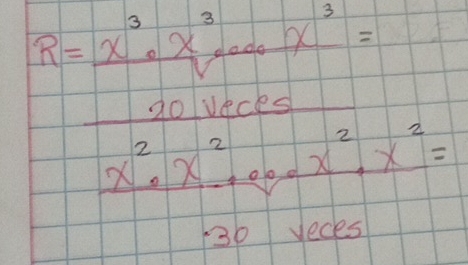 R = x³ · x³ .... x³ =
20 veces
x² · x² .... x² . x² =
30 veces